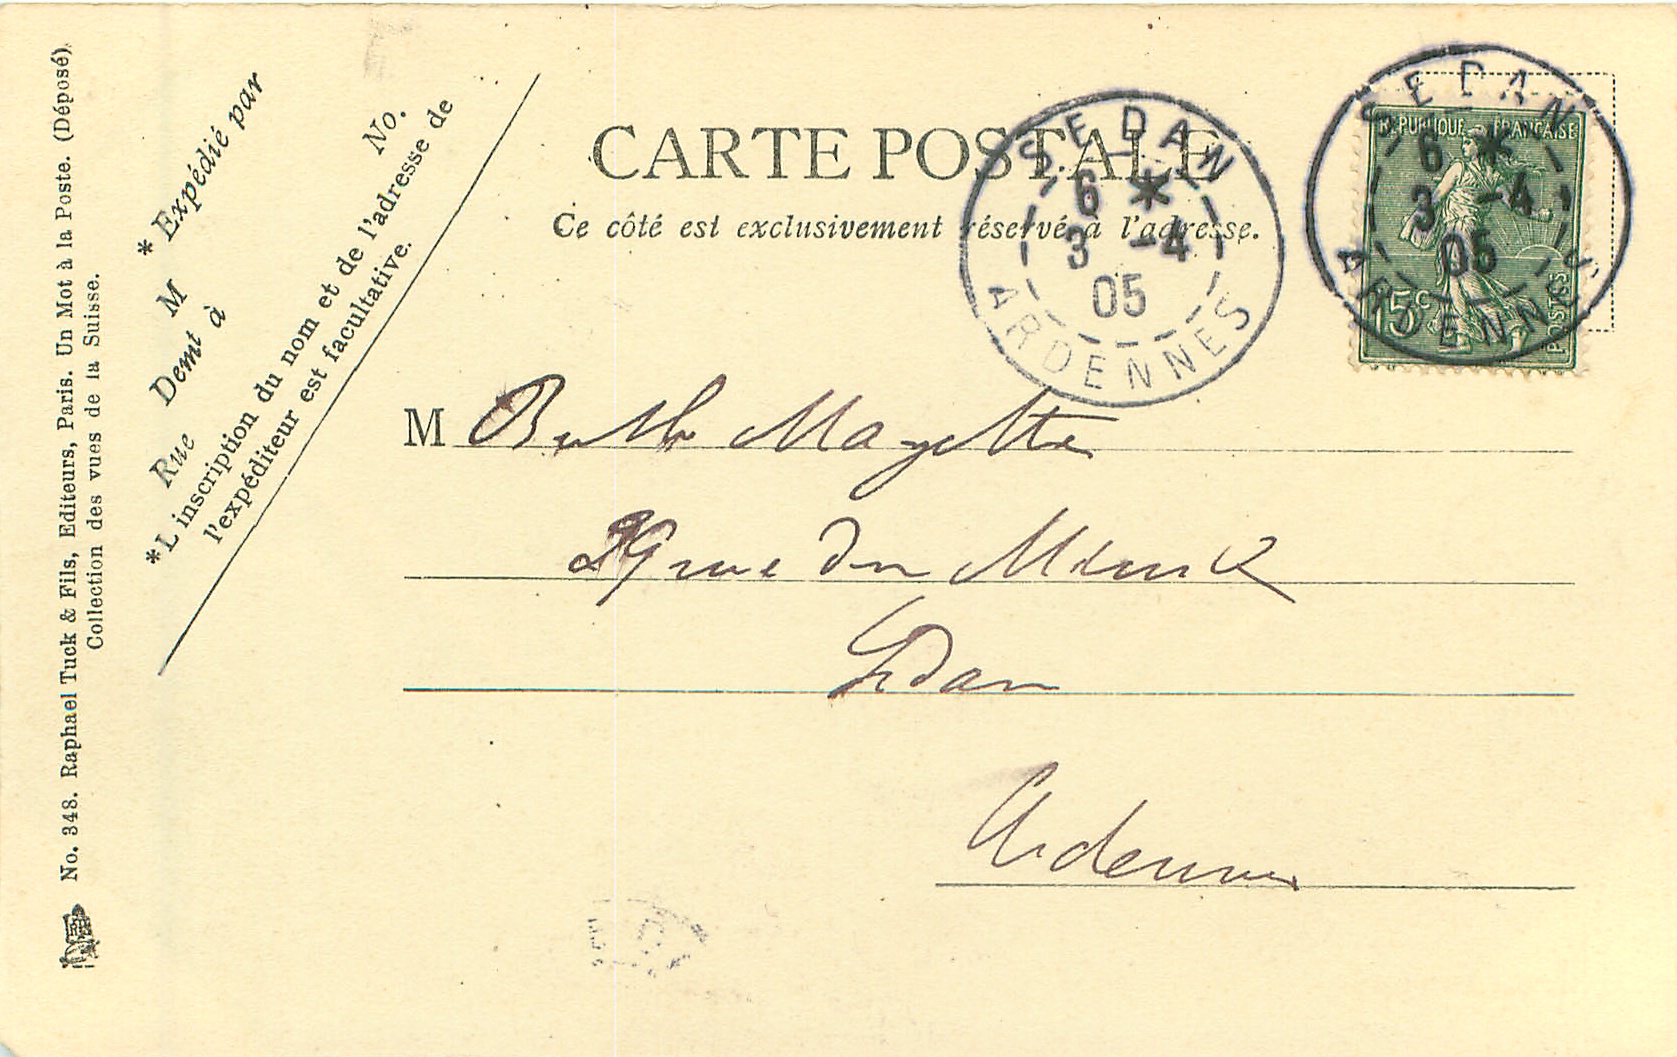 No. 348. Raphael Tuck & Fils, Editeurs, Paris. Un Mot à la Poste. (Déposé).
Collection des vues de la Suisse.
* Expédié par
M
Demt à
Rue
No.
*L'inscription du nom et de l'adresse de
l'expéditeur est facultative.
CARTE POSTALE
Ce côté est exclusivement réservé à l'adresse.
SEDAN
6 *
3 -4
05
ARDENNES
SEDAN
6 *
3 -4
05
ARDENNES
REPUBLIQUE FRANÇAISE
15c
POSTES
M Berthe Mayette
29 rue du Ménil
Sedan
Ardennes